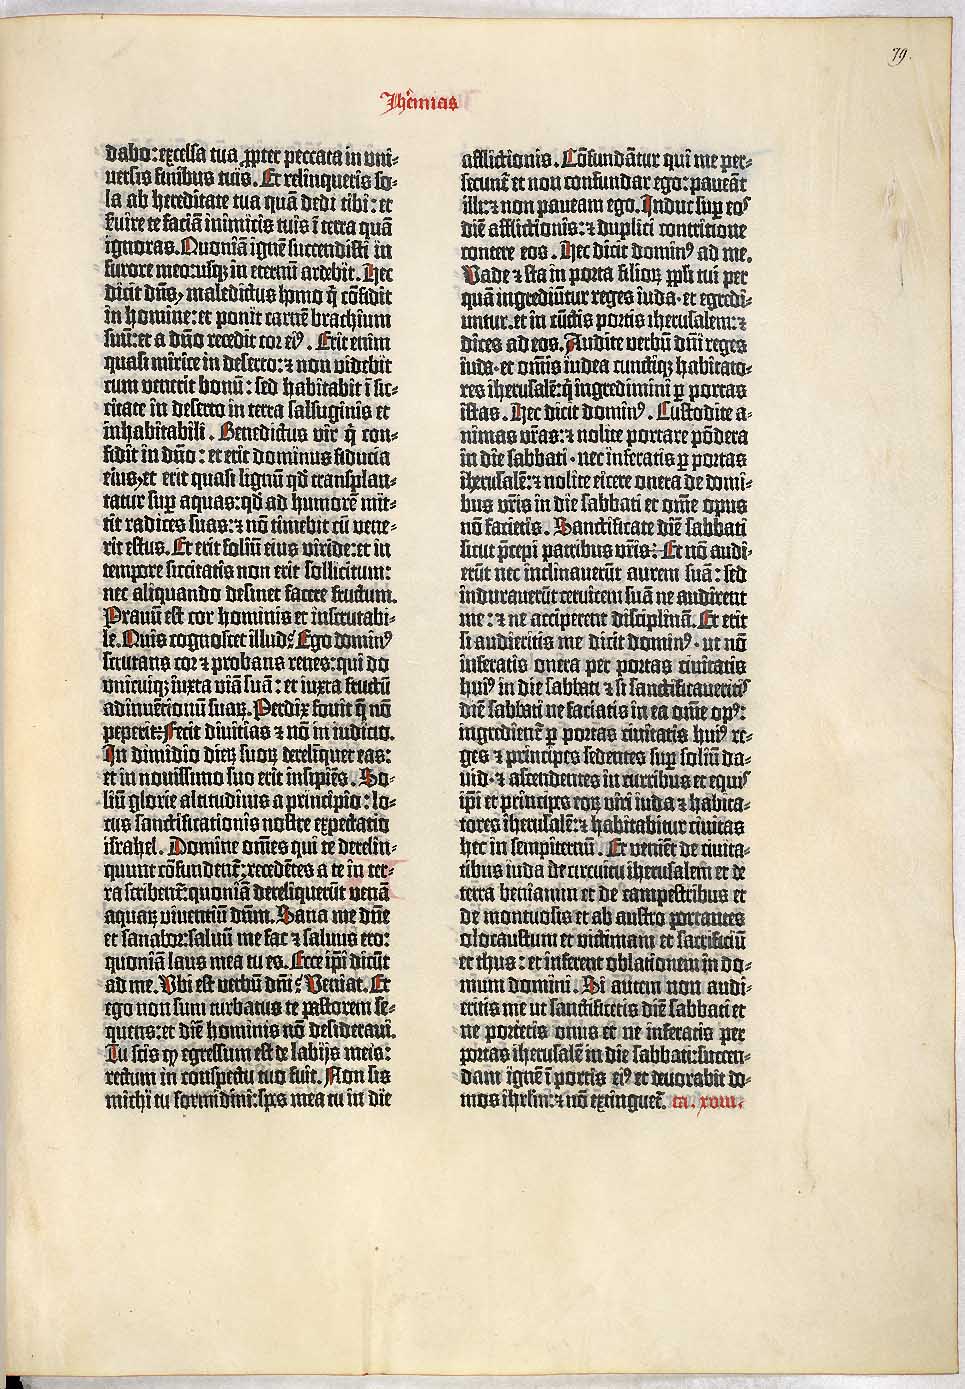 79.
Jheremias
dabo: excelsa tua ꝓpter peccata in vni-
uersis finibus tuis. Et relinqueris so-
la ab hereditate tua quā dedi tibi: et
seruire te faciā inimicis tuis ī terra quā
ignoras. Quoniā ignē succendisti in
furore meo: usqꝫ in eternū ardebit. Hec
dicit dn̄s, maledictus homo q̄ cōfidit
in homine: et ponit carnē brachium
suū: et a dn̄o recedit cor eiꝰ. Erit enim
quasi mirice in deserto: ⁊ non videbit
cum venerit bonū: sed habitabit ī sic-
citate in deserto in terra salsuginis et
inhabitabili. Benedictus vir q̄ con-
fidit in dn̄o: et erit dominus fiducia
eius, et erit quasi lignū qd̄ transplan-
tatur sup̄ aquas: qd̄ ad humorē mit-
tit radices suas: ⁊ nō timebit cū vene-
rit estus. Et erit foliū eius viride: et in
tempore siccitatis non erit sollicitum:
nec aliquando desinet facere fructum.
Prauū est cor hominis et inscrutabi-
le. Quis cognoscet illud? Ego dominꝰ
scrutans cor ⁊ probans renes: qui do
vnicuiqꝫ iuxta viā suā: et iuxta fructū
adinuētionū suaꝝ. Perdix fouit q̄ nō
peperit: Fecit diuitias ⁊ nō in iudicio.
In dimidio dieꝝ suoꝝ derelīquet eas:
et in nouissimo suo erit insipiēs. So-
liū glorie altitudinis a principio: lo-
cus sanctificationis nostre expectatio
israhel. Domine om̄es qui te derelin-
quunt cōfundent̄: recedētes a te in ter-
ra scribent̄: quoniā dereliquerūt venā
aquaꝝ viuentiū dn̄m. Sana me dn̄e
et sanabor: saluū me fac ⁊ saluus ero:
quoniā laus mea tu es. Ecce ip̄i dicūt
ad me. Vbi est verbū dn̄i? Veniat. Et
ego non sum turbatus te pastorem se-
quens: et diē hominis nō desideraui.
Tu scis qꝫ egressum est de labijs meis:
rectum in conspectu tuo fuit. Non sis
michi tu formidini: sp̄s mea tu in die
afflictionis. Cōfundātur qui me per-
secunt̄ et non confundar ego: paueāt
illi: ⁊ non paueam ego. Induc sup̄ eos
diē afflictionis: ⁊ duplici contritione
contere eos. Hec dicit dominꝰ ad me.
Vade ⁊ sta in porta filioꝝ ppl̄i tui per
quā ingrediūtur reges iuda· et egredi-
untur· et in cūctis portis iherusalem: ⁊
dices ad eos. Audite verbū dn̄i reges
iuda· et om̄is iudea cunctiqꝫ habitato-
res iherusalē: q̄ ingredimini ꝑ portas
istas. Hec dicit dominꝰ. Custodite a-
nimas vr̄as: ⁊ nolite portare pōdera
in die sabbati· nec inferatis ꝑ portas
iherusalē: ⁊ nolite eicere onera de domi-
bus vr̄is in die sabbati et om̄e opus
nō facietis. Sanctificate diē sabbati
sicut p̄cepi patribus vr̄is: Et nō audi-
erūt nec inclinauerūt aurem suā: sed
indurauerūt ceruicem suā ne audirent
me: ⁊ ne acciperent disciplinā. Et erit
si audieritis me dicit dominꝰ· ut nō
inferatis onera per portas ciuitatis
huiꝰ in die sabbati ⁊ si sanctificaueritis
diē sabbati ne faciatis in ea om̄e opꝰ:
ingredient̄ ꝑ portas ciuitatis huiꝰ re-
ges ⁊ principes sedentes sup̄ soliū da-
uid· ⁊ ascendentes in curribus et equis
ip̄i et principes eoꝝ viri iuda ⁊ habita-
tores iherusalē: ⁊ habitabitur ciuitas
hec in sempiternū. Et veniēt de ciuita-
tibus iuda de circuitu iherusalem et de
terra beniamin et de campestribus et
de montuosis et ab austro portantes
olocaustum et victimam et sacrificiū
et thus: et inferent oblationem in do-
mum domini. Si autem non audi-
eritis me ut sanctificetis diē sabbati et
ne portetis onus et ne inferatis per
portas iherusalē in die sabbati: succen-
dam ignē ī portis eiꝰ et deuorabit do-
mos ihrl̄m: ⁊ nō extinguet̄. ca. xviii.